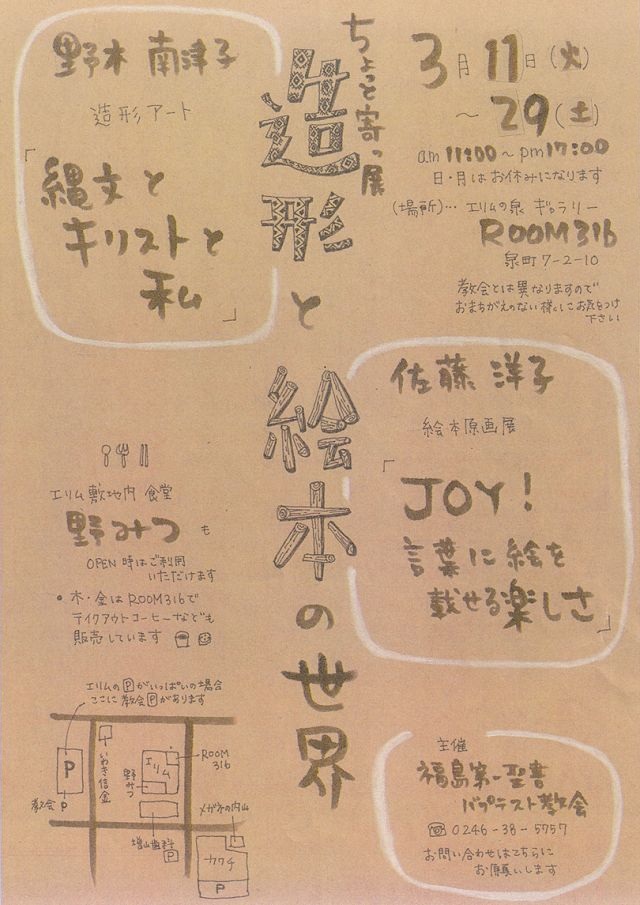 ちょっと寄っ展
造形と絵本の世界
3月11日(火)
～29(土)
am11:00～pm17:00
日・月はお休みになります
(場所)…エリムの泉 ギャラリー
ROOM316
泉町7-2-10
教会とは異なりますので
おまちがえのない様にお気をつけ
下さい
野木 南津子
造形アート
「縄文と
キリストと
私」
佐藤 洋子
絵本原画展
「JOY!
言葉に絵を
載せる楽しさ」
エリム敷地内 食堂
野みつも
OPEN時はご利用
いただけます
・木・金はROOM316で
テイクアウトコーヒーなども
販売しています
エリムのPがいっぱいの場合
ここに教会Pがあります
P
教会P
いわき信金
エリム
野みつ
ROOM
316
増山歯科
P
メガネの内山
カワチ
P
主催
福島第一聖書
バプテスト教会
☎0246-38-5757
お問い合わせはこちらに
お願いします